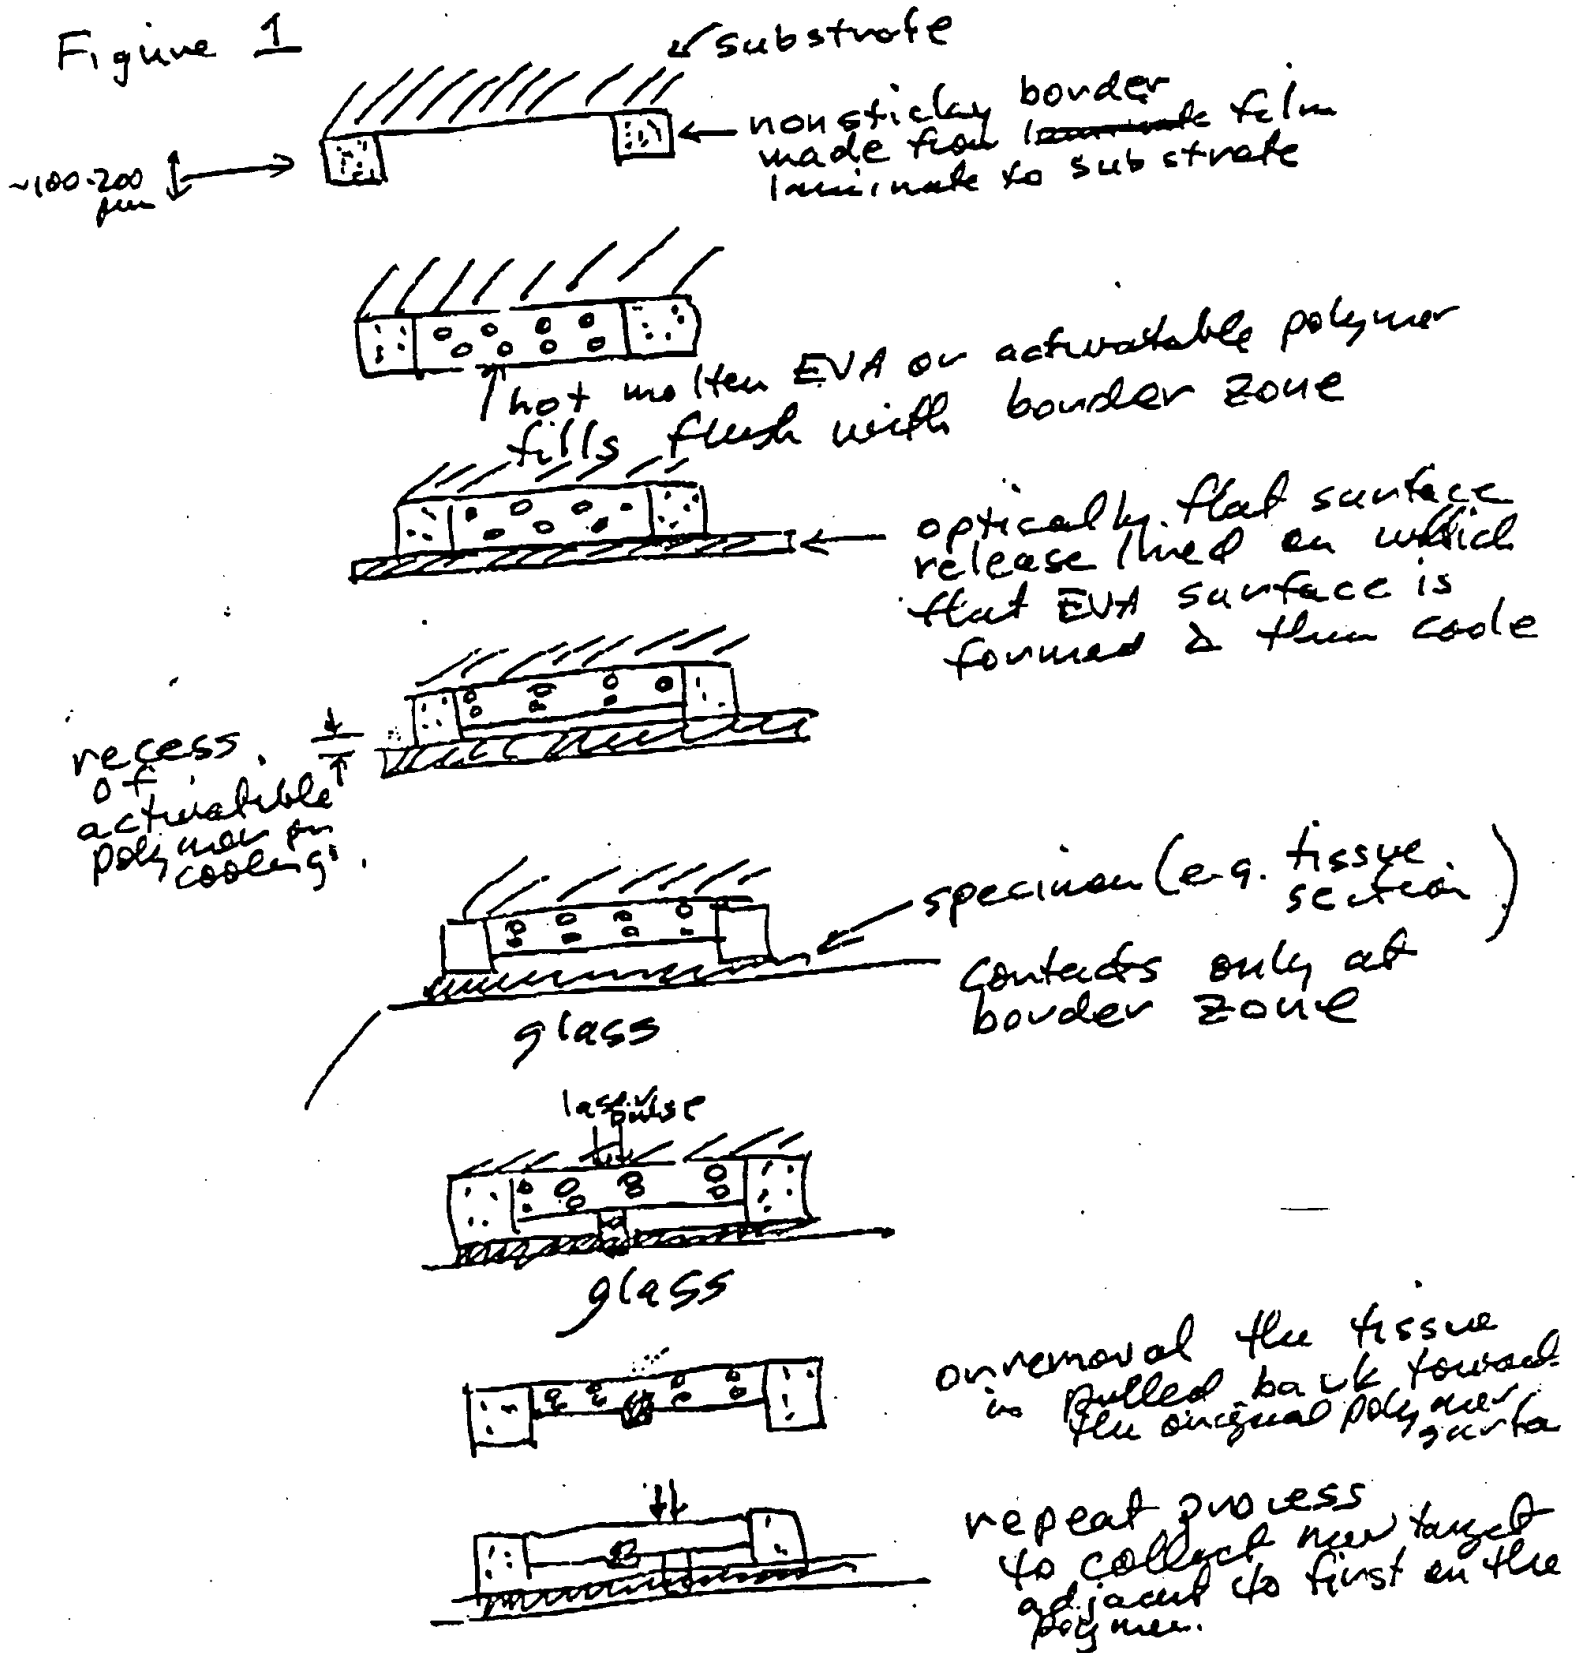 Figure 1
substrate
nonsticky border
made from film
laminate to substrate
~100-200
μm
hot molten EVA or activatable polymer
fills flush with border zone
optically flat surface
release lined on which
flat EVA surface is
formed & then coole
recess
of
activatible
polymer on
cooling.
specimen (e.g. tissue
section)
contacts only at
border zone
glass
laser pulse
glass
on removal the tissue
is pulled back toward
the original polymer
surfa
repeat process
to collect new target
adjacent to first on the
polymer.